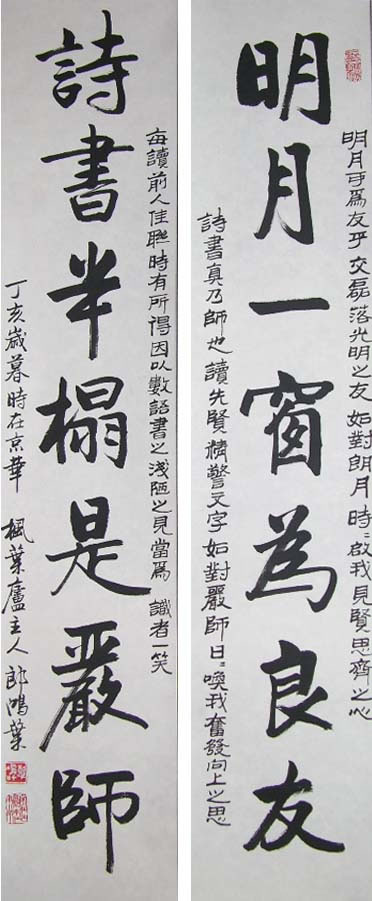 明月可為友乎交磊落光明之友如對朗月時時啟我見賢思齊之心
明月一窗為良友
詩書真乃師也讀先賢精警文字如對嚴師日日喚我奮發向上之思
每讀前人佳聯時有所得因以數語書之淺陋之見當為識者一笑
詩書半榻是嚴師
丁亥歲暮時在京華楓葉廬主人郎鴻葉